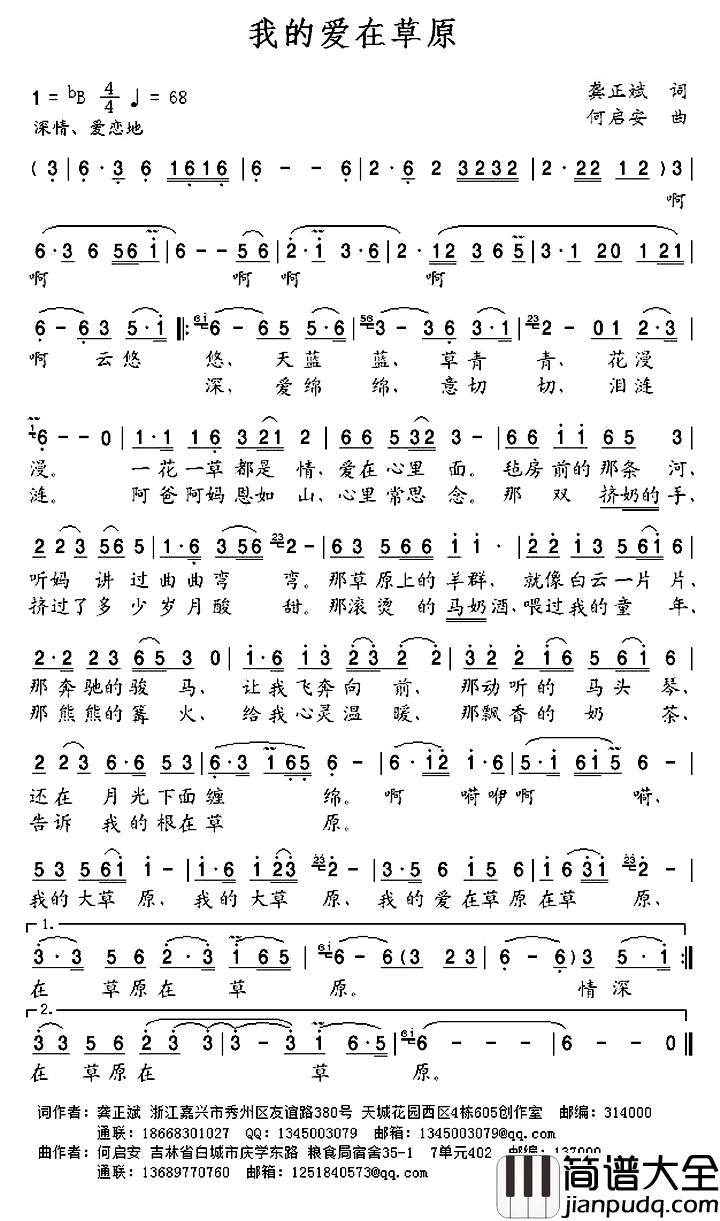 我的爱在草原
1 = ♭B 4/4 ♩ = 68
龚正斌 词
深情、爱恋地
何启安 曲
( 3 | 6 · 3 6 1 6 1 6 | 6 - - 6 | 2 · 6 2 3 2 3 2 | 2 · 2 2 1 2 ) 3 |
啊
6 · 3 6 5 6 1 | 6 - - 5 6 | 2 · 1 3 · 6 | 2 · 1 2 3 6 5 | 3 · 1 2 0 1 2 1 |
啊 啊 啊 啊
6 - 6 3 5 · 1 ‖: 6 - 6 5 5 · 6 | 3 - 3 6 3 · 1 | 2 - 0 1 2 · 3 |
啊 云 悠 悠、 天 蓝 蓝、 草 青 青、 花 漫
深、 爱 绵 绵、 意 切 切、 泪 涟
6 - - 0 | 1 · 1 1 6 3 2 1 2 | 6 6 5 5 3 2 3 - | 6 6 1 1 6 5 3 |
漫。 一 花 一 草 都 是 情、 爱 在 心 里 面。 毡 房 前 的 那 条 河、
涟。 阿 爸 阿 妈 恩 如 山、 心 里 常 思 念。 那 双 挤 奶 的 手、
2 2 3 5 6 5 | 1 · 6 3 5 6 2 - | 6 3 5 6 6 1 1 · | 2 2 1 3 5 6 1 6 |
听 妈 讲 过 曲 曲 弯 弯。 那 草 原 上 的 羊 群、 就 像 白 云 一 片 片、
挤 过 了 多 少 岁 月 酸 甜。 那 滚 烫 的 马 奶 酒、 喂 过 我 的 童 年、
2 · 2 2 3 6 5 3 0 | 1 · 6 1 3 2 3 2 2 | 3 2 2 1 6 5 5 6 1 6 |
那 奔 驰 的 骏 马、 让 我 飞 奔 向 前、 那 动 听 的 马 头 琴、
那 熊 熊 的 篝 火、 给 我 心 灵 温 暖、 那 飘 香 的 奶 茶、
2 2 3 6 · 6 5 3 | 6 · 3 1 6 5 6 - | 6 · 1 2 1 · 6 | 5 · 1 6 1 5 6 - |
还 在 月 光 下 面 缠 绵。 啊 嗬 咿 啊 嗬、
告 诉 我 的 根 在 草 原。
5 3 5 6 1 1 - | 1 · 6 1 2 3 2 - | 3 · 5 6 1 5 6 6 5 3 2 - |
我 的 大 草 原、 我 的 大 草 原、 我 的 爱 在 草 原 在 草 原、
1.
3 · 3 5 6 2 · 3 3 | 1 6 5 6 - 6 ( 3 2 3 | 6 - 6 ) 3 5 · 1 :‖
在 草 原 在 草 原。 情 深
2.
3 3 5 6 2 3 3 | 3 - 3 1 6 · 5 | 6 - - - | 6 - - 0 ‖
在 草 原 在 草 原。
词作者: 龚正斌 浙江嘉兴市秀州区友谊路380号 天城花园西区4栋605创作室 邮编: 314000
通联: 18668301027 QQ: 1345003079 邮箱: 1345003079@qq.com
曲作者: 何启安 吉林省白城市庆学东路 粮食局宿舍35-1 7单元402 邮编: 137000
通联: 13689770760 邮箱: 1251840573@qq.com
简谱大全
jianpudq.com